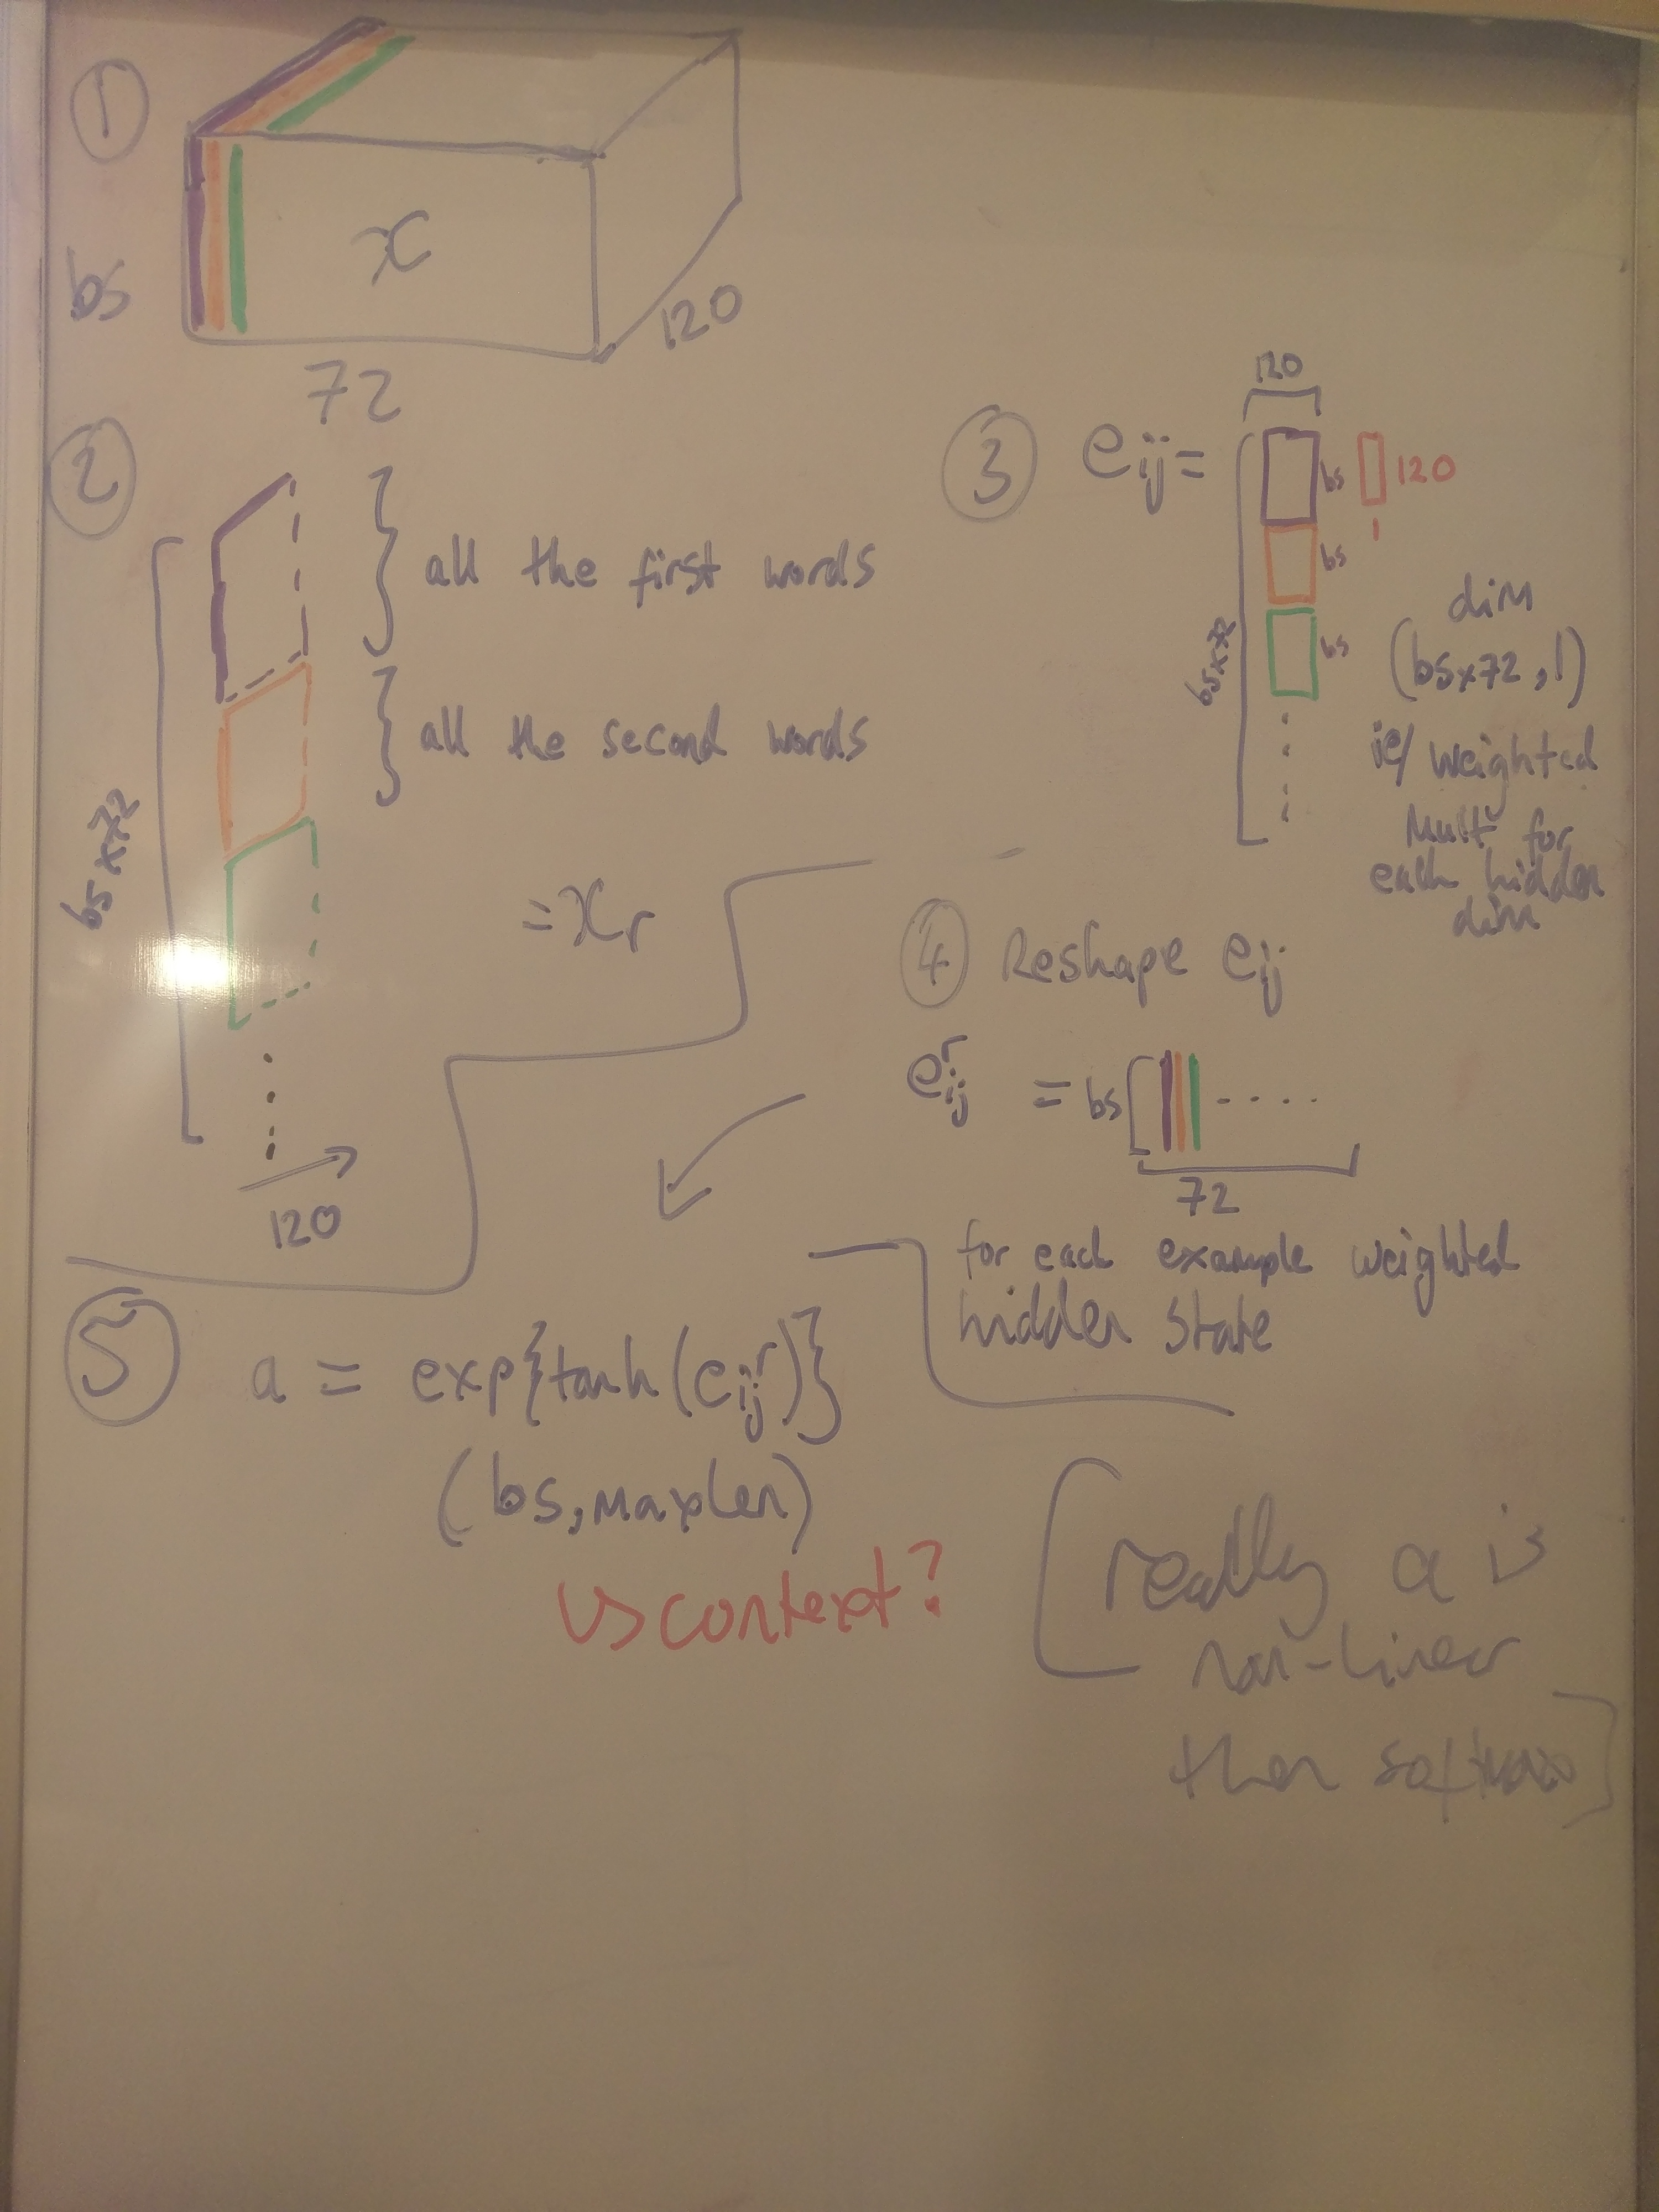 ①
x
bs
120
72
②
all the first words
all the second words
bs×72
= xᵣ
120
③ eᵢⱼ =
120
bs
120
1
bs
bs
bs×72
dim
(bs×72, 1)
ie/ weighted
Mult for
each hidden
dim
④ Reshape eᵢⱼ
eʳᵢⱼ = bs
72
for each example weighted
hidden state
⑤ a = exp{tanh(eʳᵢⱼ)}
(bs, maxlen)
vs context?
[really a is
non-linear
then softmax]